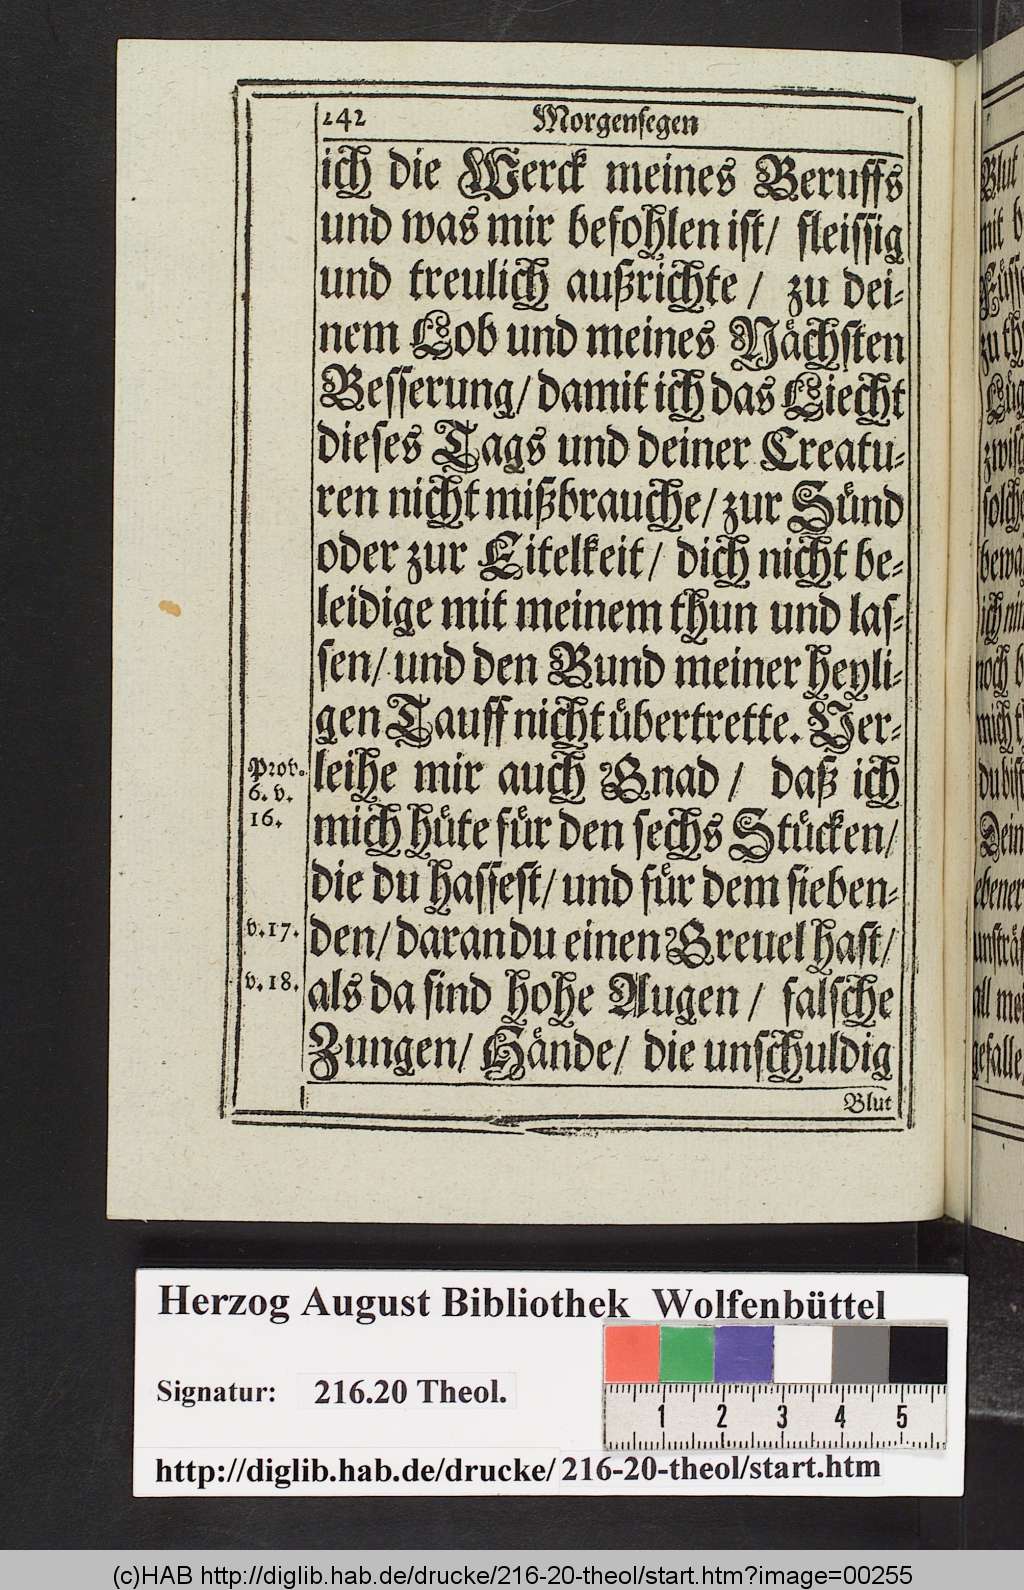 242 Morgensegen
ich die Werck meines Beruffs
und was mir befohlen ist/ fleissig
und treulich außrichte/ zu dei-
nem Lob und meines Nächsten
Besserung/ damit ich das Liecht
dieses Tags und deiner Creatu-
ren nicht mißbrauche/ zur Sünd
oder zur Eitelkeit/ dich nicht be-
leidige mit meinem thun und las-
sen/ und den Bund meiner heyli-
gen Tauff nicht übertrette. Ver-
Prov.
6. v.
16.
leihe mir auch Gnad/ daß ich
mich hüte für den sechs Stücken/
die du hassest/ und für dem sieben-
v. 17.
den/ daran du einen Greuel hast/
v. 18.
als da sind hohe Augen/ falsche
Zungen/ Hände/ die unschuldig
Blut
Blut
mit
zu th
zwisc
solche
bewa
ich
noch
mich
du bist
Dein
ebener
unsträf
all mei
gefalle
Herzog August Bibliothek Wolfenbüttel
Signatur: 216.20 Theol.
1 2 3 4 5
http://diglib.hab.de/drucke/216-20-theol/start.htm
(c)HAB http://diglib.hab.de/drucke/216-20-theol/start.htm?image=00255